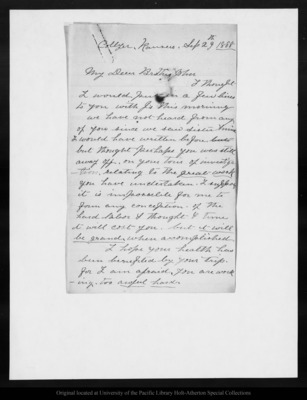 Collyer, Kansas, Sep 29th 1888
My Dear Brother John
I thought
I would pencil a few lines
to you with Jo this morning
we have not heard from any
of you since we saw sister
I would have written before
but thought perhaps you was still
away off, on your tour of investiga
-tion, relating to the great work
you have undertaken. I suppose
it is impossible for me to
form any conception of the
hard labor & thought & time
it will cost you. but it will
be grand, when accomplished.
I hope your health has
been benefited by your trip.
for I am afraid, you are work
-ing, too awful hard.
Original located at University of the Pacific Library Holt-Atherton Special Collections